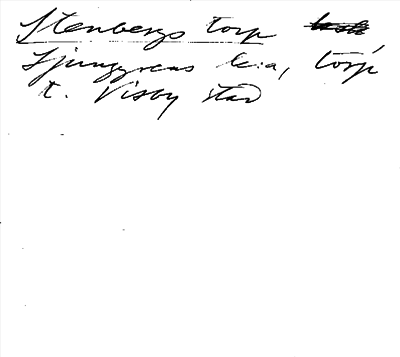 Stenbergs torp
Ljunggrens li:a, torp
t. Visby stad